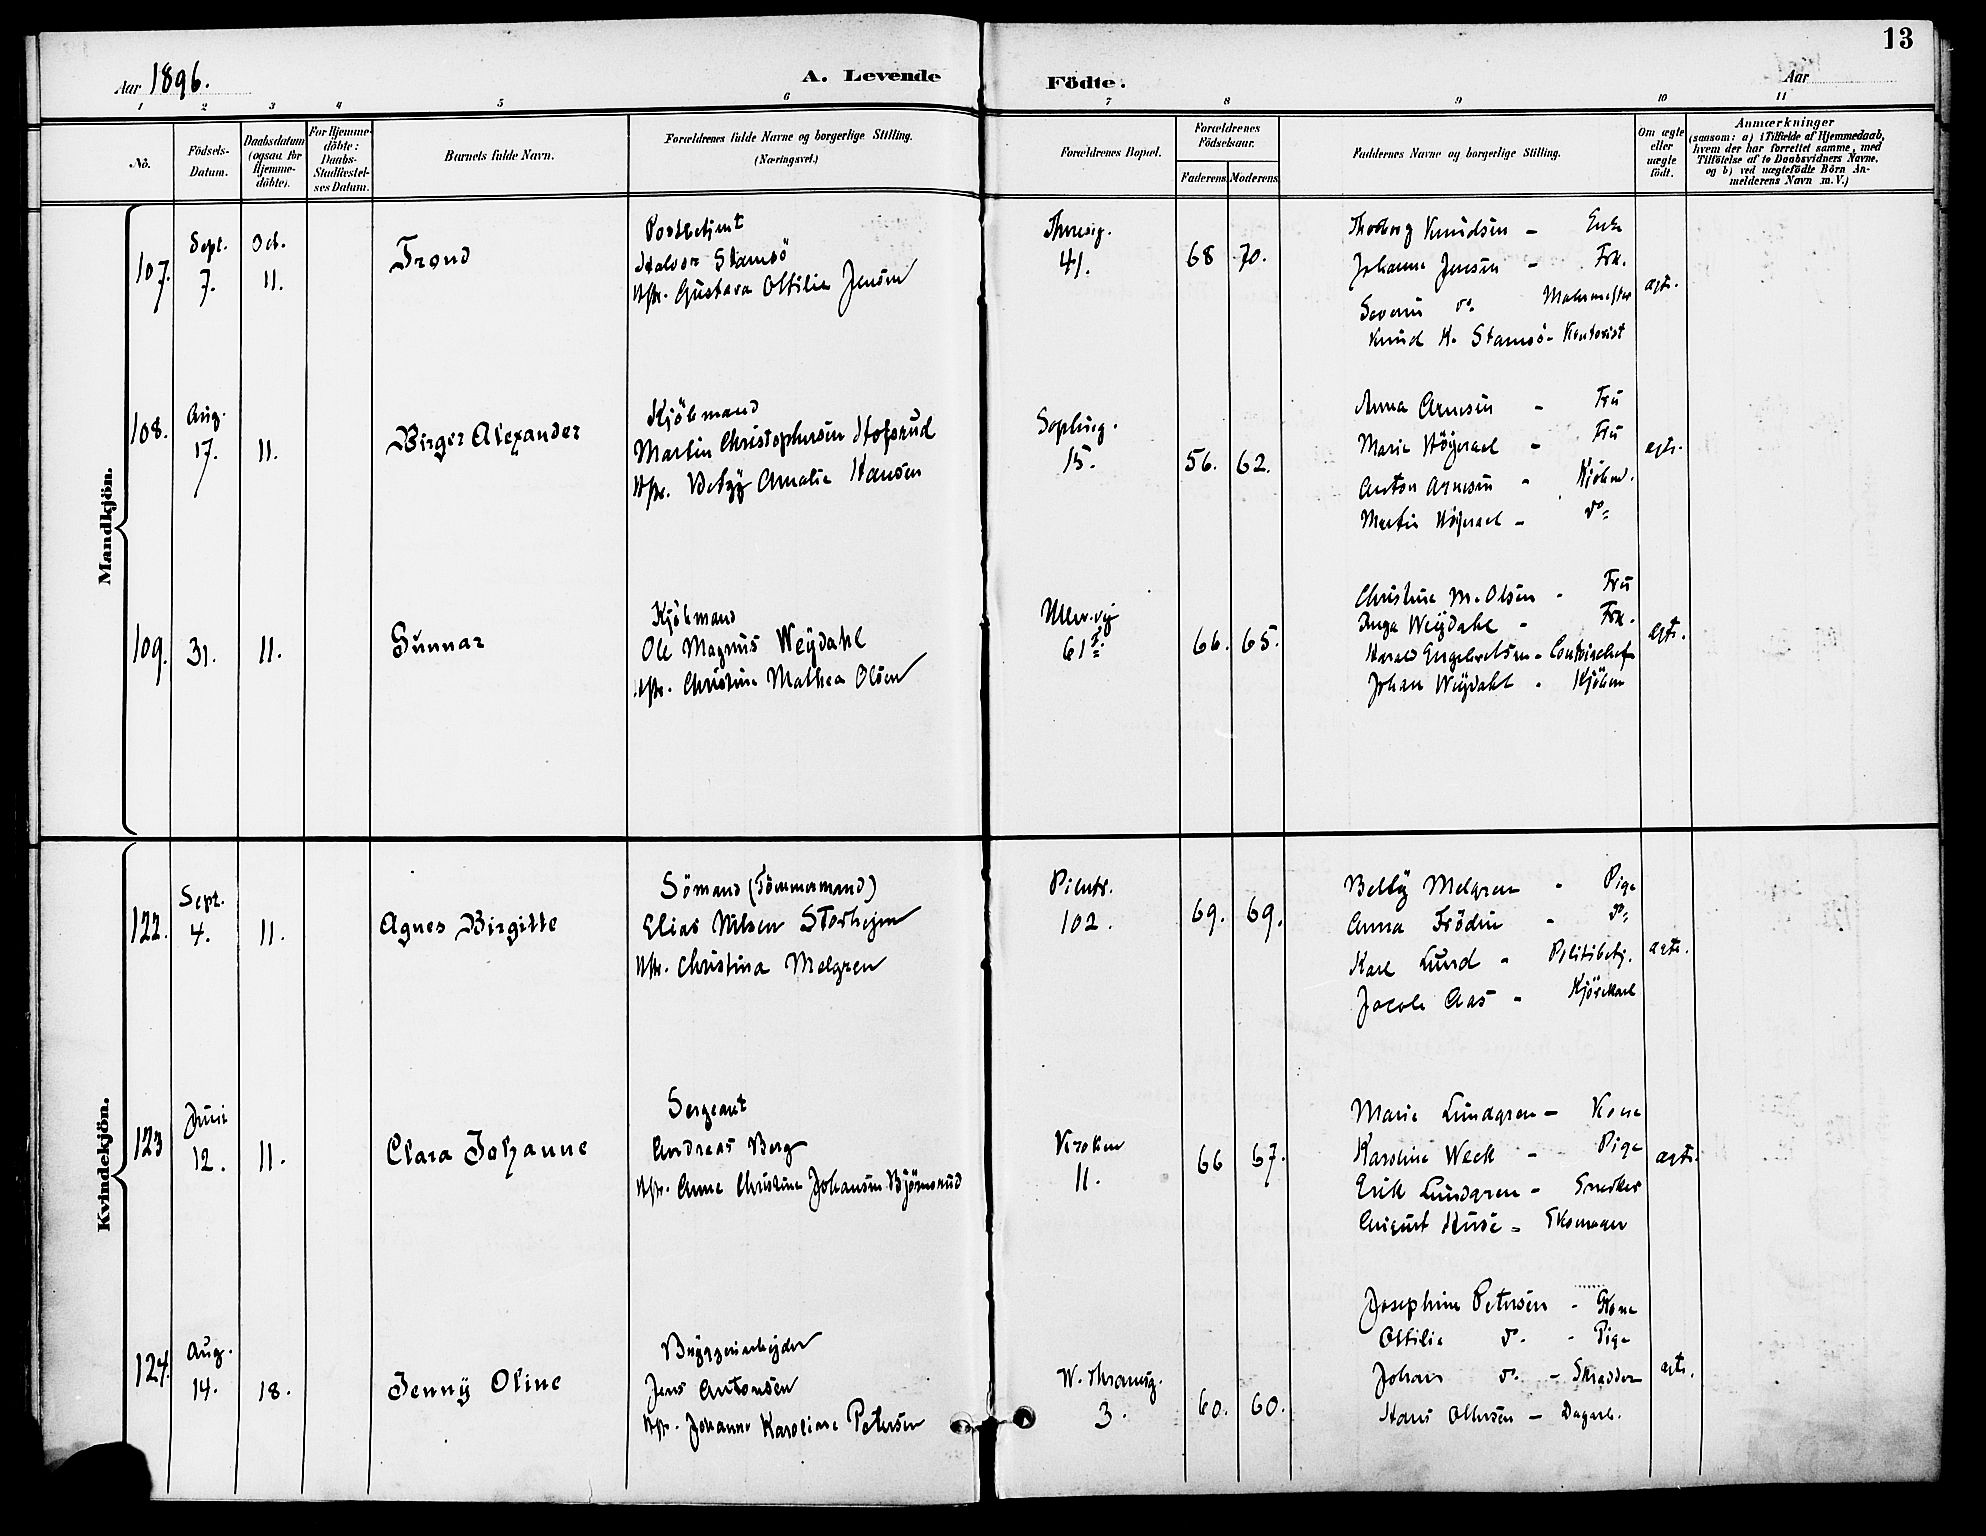 13
Aar 1896.
A. Levende
Födte.
Aar
1 2 3 4 5 6 7 8 9 10 11
No.
Födsels-
Datum.
Daabsdatum
(ogsaa for
Hjemme-
döbte).
For Hjemme-
döbte:
Daabs-
Stadfæstel-
ses Datum.
Barnets fulde Navn.
Forældrenes fulde Navne og borgerlige Stilling.
(Næringsvei.)
Forældrenes Bopæl.
Forældrenes
Födselsaar.
Faderens.
Moderens.
Faddernes Navne og borgerlige Stilling.
Om ægte
eller
uægte
födt.
Anmærkninger
(saasom: a) i Tilfælde af Hjemmedaab,
hvem der har forrettet samme, med
Tilföielse af to Daabsvidners Navne,
og b) ved uægtefödte Börn An-
melderens Navn m. V.)
Mandkjön.
107.
Sept.
7.
Oct.
11.
Trond
Postbetjent
Halvor Stamsö
Hstr. Gustava Ottilia Jensen
Theresig.
41.
68 70.
Thorborg Knudsen - Enke
Johanne Jensen - Frk.
Severin do. Malermester
Knud H. Stamsö - Kontorist
ægte.
108.
Aug.
17.
11.
Birger Alexander
Kjöbmand
Martin Christophersen Hofsrud
Hstr. Betzy Amalie Hansen
Sophieg.
15.
56. 62.
Anna Arnesen - Fru
Marie Höyeraal - Fru
Anton Arnesen - Kjöbm.
Martin Höyeraal - do
ægte.
109.
31.
11.
Gunnar
Kjöbmand
Ole Magnus Weydahl
Hstr. Christine Mathea Olsen
Ullev.vej
61
66. 65.
Christine M. Olsen - Fru
Inga Weydahl - Frk.
Harald Engebretsen - Contorchef
Johan Weydahl - Kjöbm
ægte.
Kvindekjön.
122.
Sept.
4.
11.
Agnes Birgitte
Sömand (Tömmermand)
Elias Nilsen Storhejm
Hstr. Christina Melgren
Pilestr.
102.
69. 69.
Betty Melgren - Pige
Anna Frödin - do
Karl Lund - Politibetj.
Jacob Aas - Kjörekarl
ægte.
123
Juni
12.
11.
Clara Johanne
Sergeant
Andreas Berg
Hstr. Anne Christine Johansen Björnsrud
Kroken
11.
66 67.
Marie Lundgren - Kone
Karoline Weck - Pige
Erik Lundgren - Snedker
August Huse - Skomager
ægte.
124.
Aug.
14.
18.
Jenny Oline
Bryggeriarbejder
Jens Antonsen
Hstr. Johanne Karoline Petersen
W. Thranesg.
3.
60. 60.
Josephine Petersen - Kone
Ottilie do. - Pige
Johan do. - Skrædder
Hans Ottersen - Dagarb.
ægte.